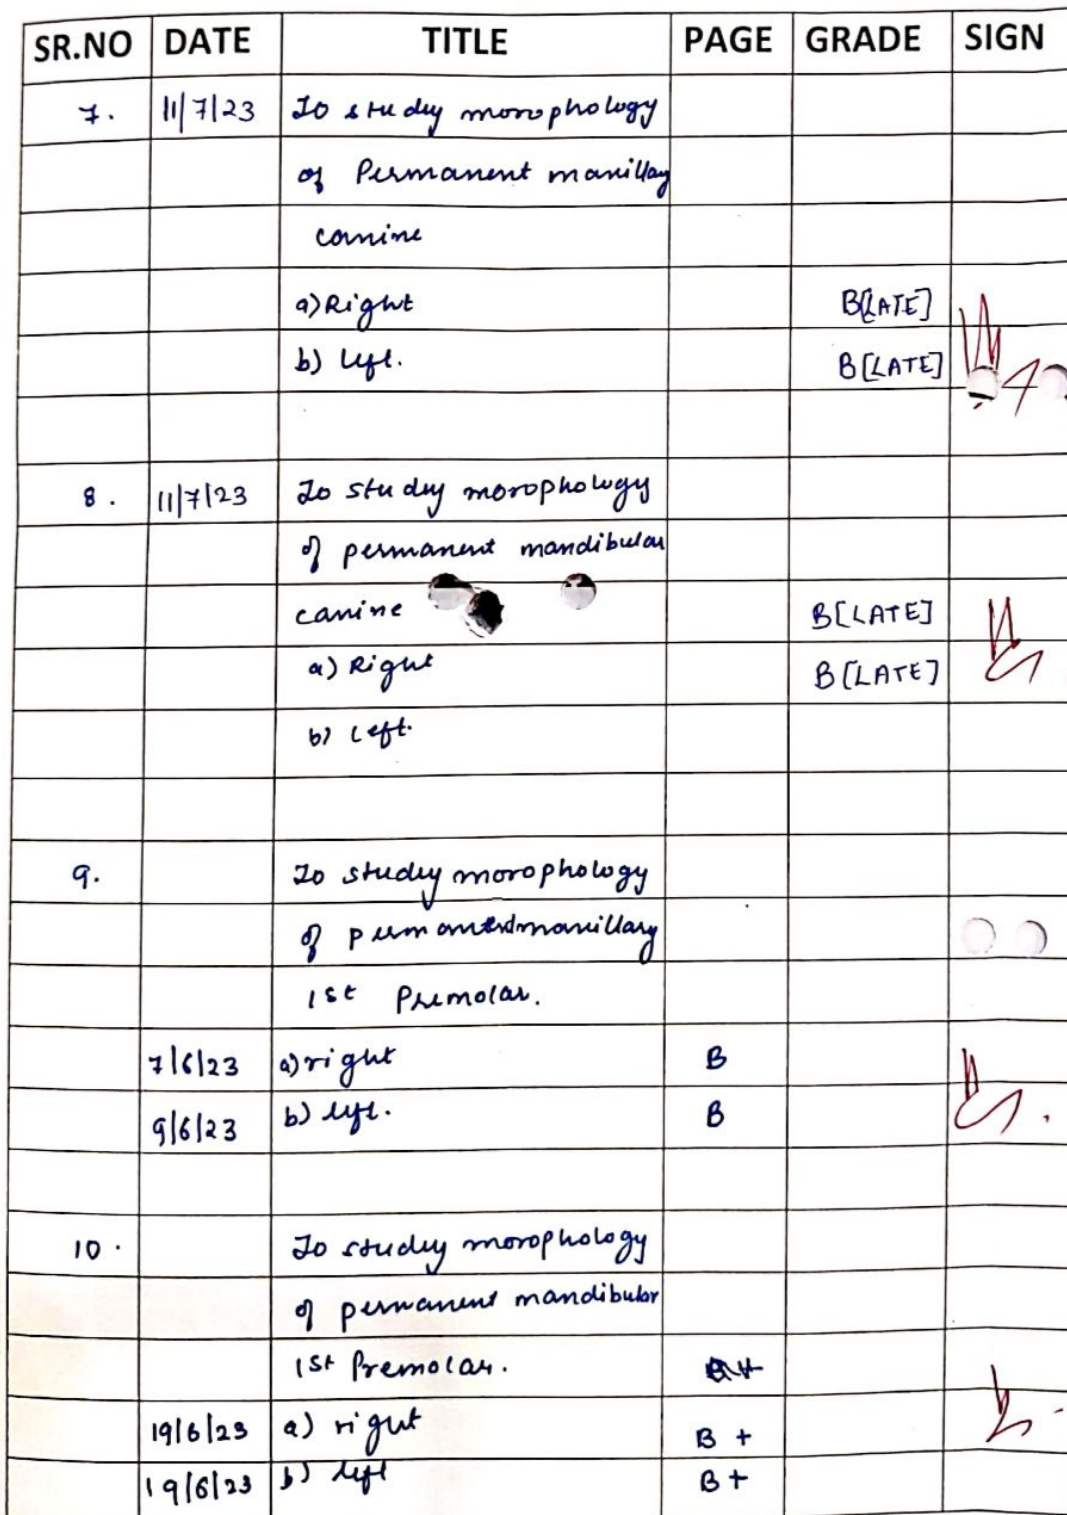 SR.NO DATE TITLE PAGE GRADE SIGN
7. 11/7/23 To study morophology
of Permanent manillay
canine
a) Right B[LATE]
b) left. B[LATE]
8. 11/7/23 To study morophology
of permanent mandibular
canine B[LATE]
a) Right B[LATE]
b) Left.
9. To study morophology
of permanent manillary
1st Premolar.
7/6/23 a) right B
9/6/23 b) left. B
10. To study morophology
of permanent mandibular
1st Premolar.
19/6/23 a) right B +
19/6/23 b) left B +